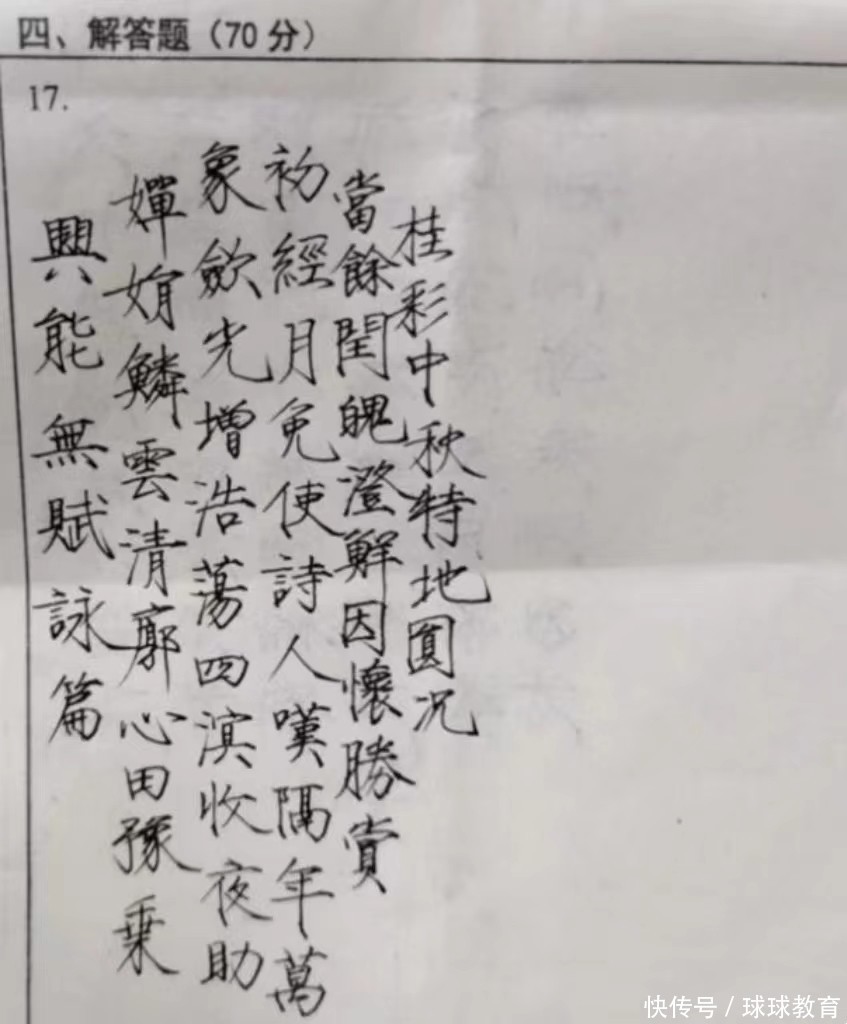 四、解答题（70 分）
17.
桂彩中秋特地圓况
當餘閏魄澄鮮因懷勝賞
初經月免使詩人嘆隔年萬
象歛光增浩蕩四溟收夜助
嬋娟鱗雲清廓心田豫乗
興能無賦詠篇
快传号 / 球球教育